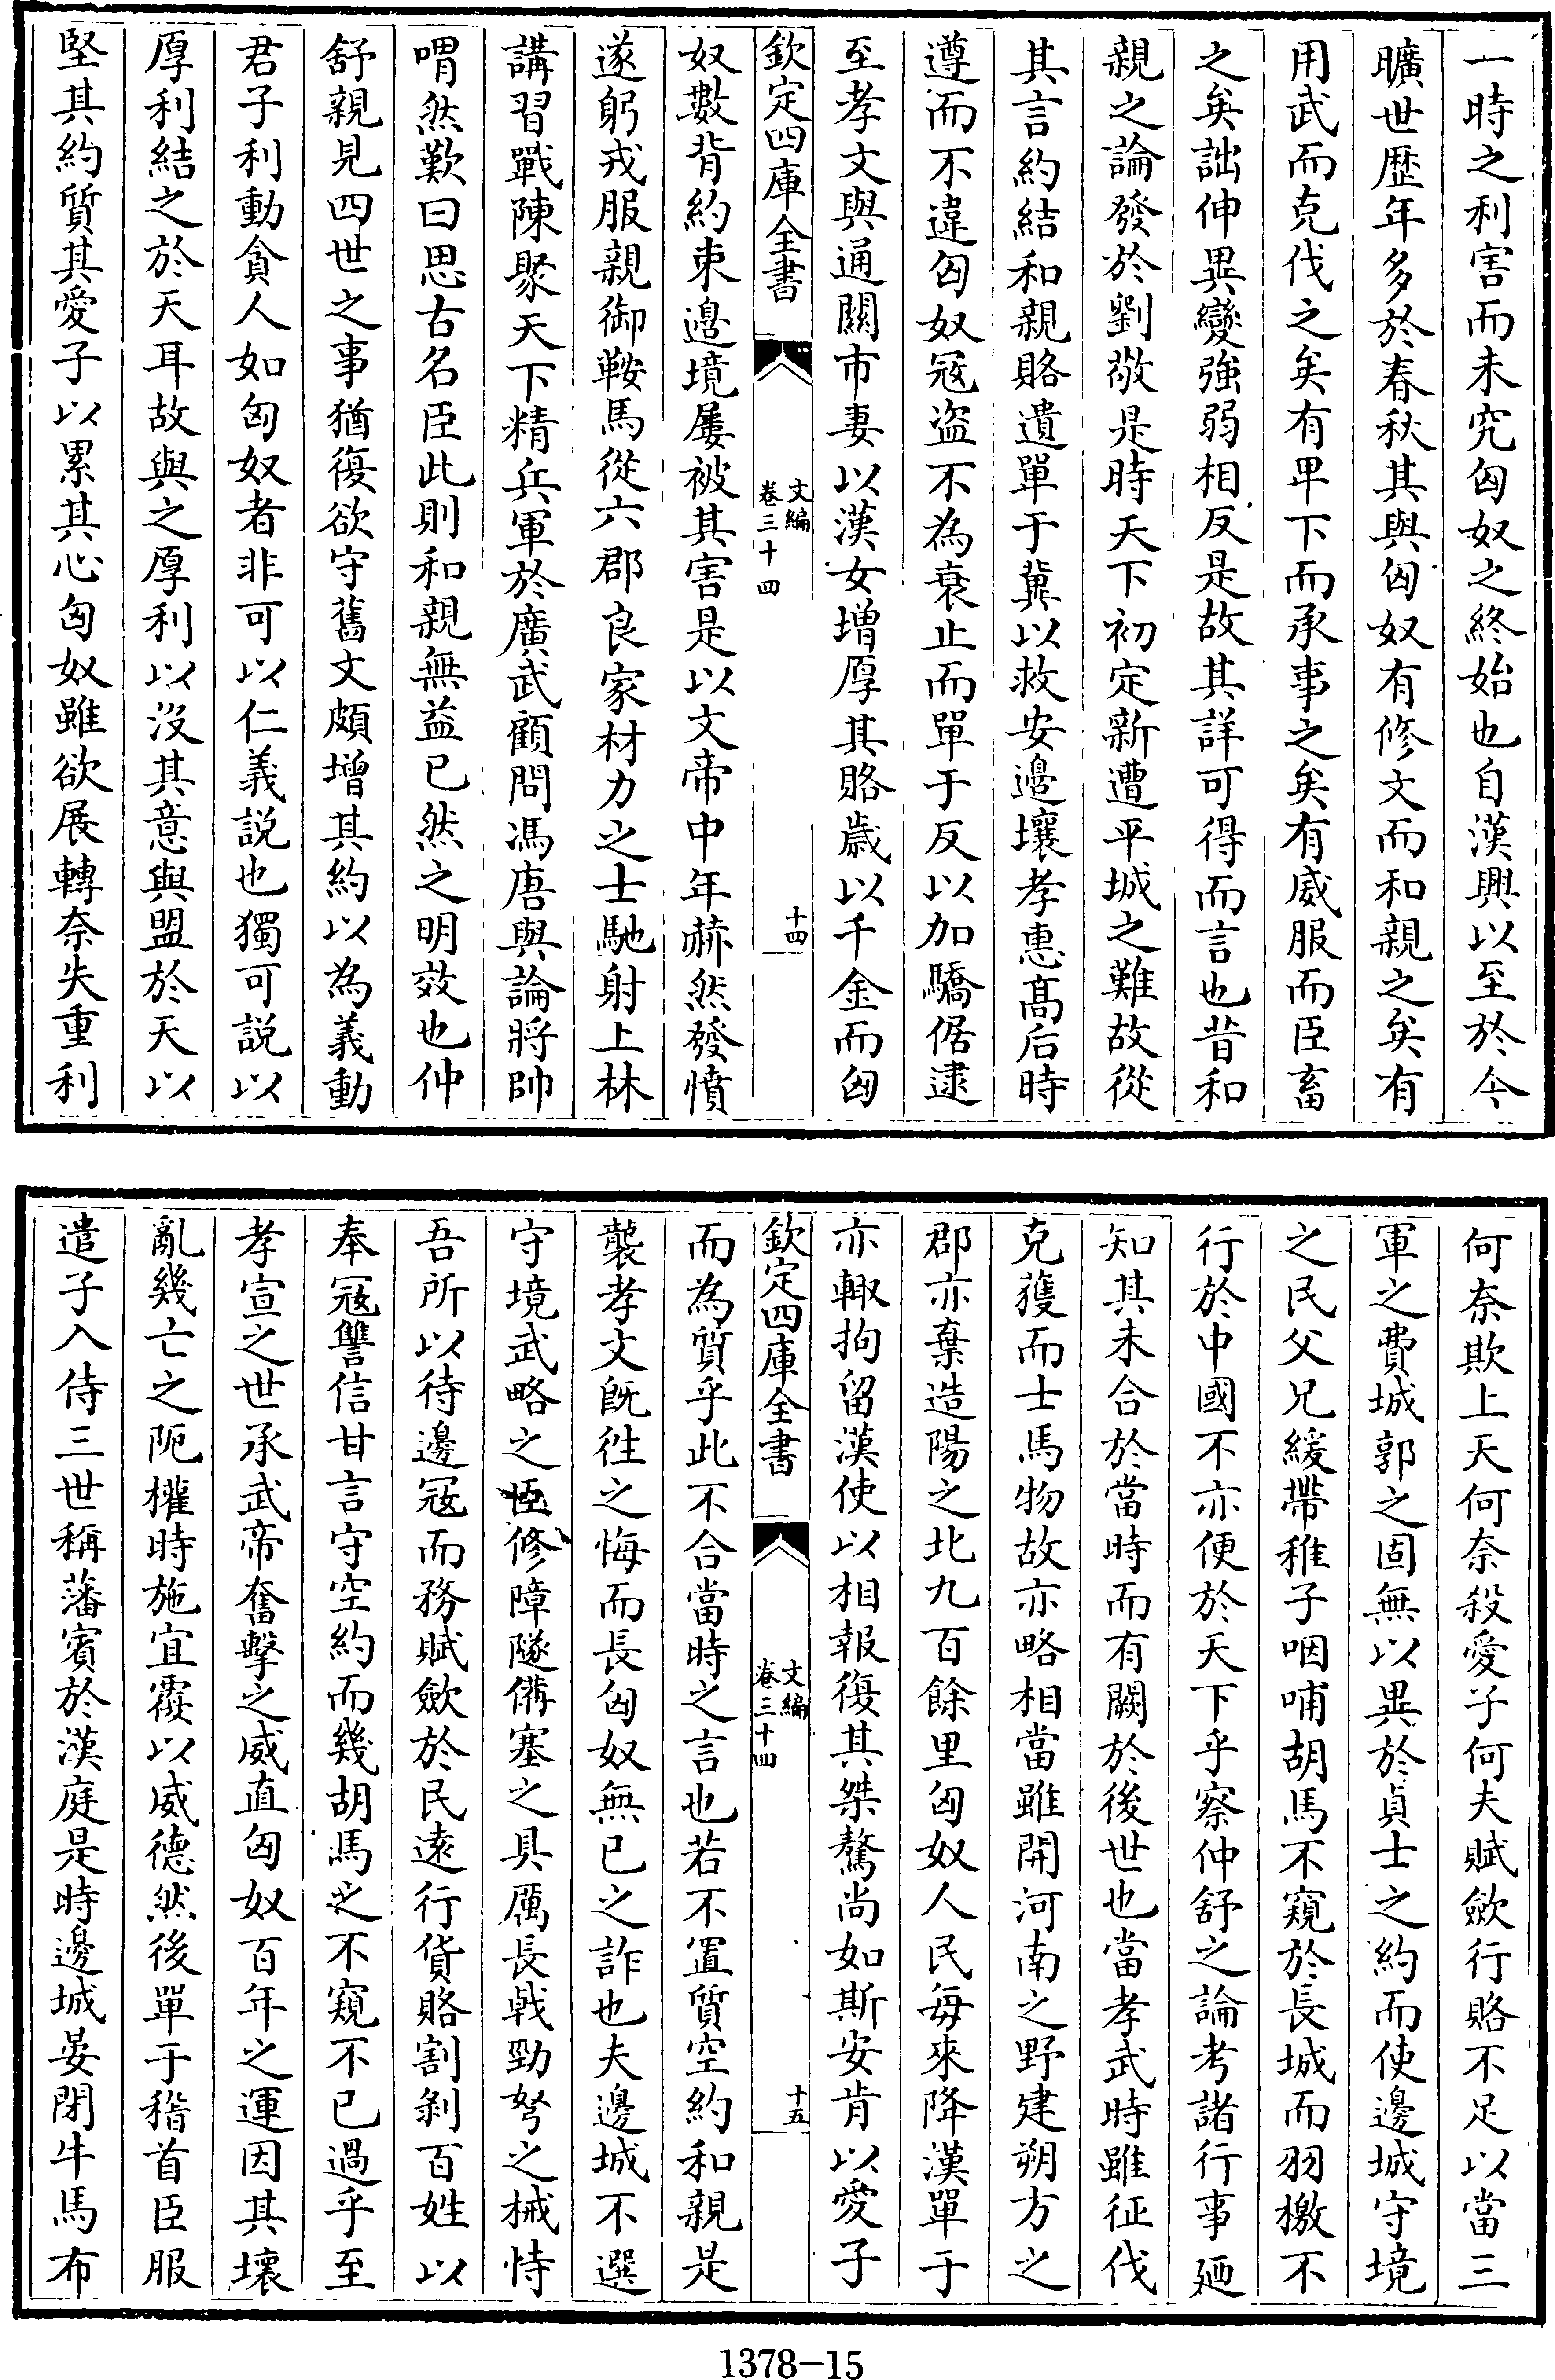 一時之利害而未究匈奴之終始也自漢興以至於今
曠世歴年多於春秋其與匈奴有修文而和親之矣有
用武而克伐之矣有卑下而承事之矣有威服而臣畜
之矣詘伸異變強弱相反是故其詳可得而言也昔和
親之論發於劉敬是時天下初定新遭平城之難故從
其言約結和親賂遺單于冀以救安邊壤孝惠髙后時
遵而不違匈奴冦盗不為衰止而單于反以加驕倨逮
至孝文與通關市妻以漢女增厚其賂歳以千金而匈
欽定四庫全書
文編
卷三十四
十四
奴數背約束邉境屢被其害是以文帝中年赫然發憤
遂躬戎服親御鞍馬從六郡良家材力之士馳射上林
講習戰陳聚天下精兵軍於廣武顧問馮唐與論將帥
喟然歎曰思古名臣此則和親無益已然之明效也仲
舒親見四世之事猶復欲守舊文頗增其約以為義動
君子利動貪人如匈奴者非可以仁義説也獨可説以
厚利結之於天耳故與之厚利以沒其意與盟於天以
堅其約質其愛子以累其心匈奴雖欲展轉奈失重利
何奈欺上天何奈殺愛子何夫賦歛行賂不足以當三
軍之費城郭之固無以異於貞士之約而使邊城守境
之民父兄緩帶稚子咽哺胡馬不窺於長城而羽檄不
行於中國不亦便於天下乎察仲舒之論考諸行事廼
知其未合於當時而有闕於後世也當孝武時雖征伐
克獲而士馬物故亦略相當雖開河南之野建朔方之
郡亦棄造陽之北九百餘里匈奴人民每來降漢單于
亦輙拘留漢使以相報復其桀驁尚如斯安肯以愛子
欽定四庫全書
文編
卷三十四
十五
而為質乎此不合當時之言也若不置質空約和親是
襲孝文既徃之悔而長匈奴無已之詐也夫邊城不選
守境武略之臣修障隧備塞之具厲長戟勁弩之械恃
吾所以待邊冦而務賦歛於民逺行貨賂割剝百姓以
奉冦讐信甘言守空約而幾胡馬之不窺不已過乎至
孝宣之世承武帝奮擊之威直匈奴百年之運因其壞
亂幾亡之阨權時施宜覆以威德然後單于稽首臣服
遣子入侍三世稱藩賓於漢庭是時邊城晏閉牛馬布
1378-15